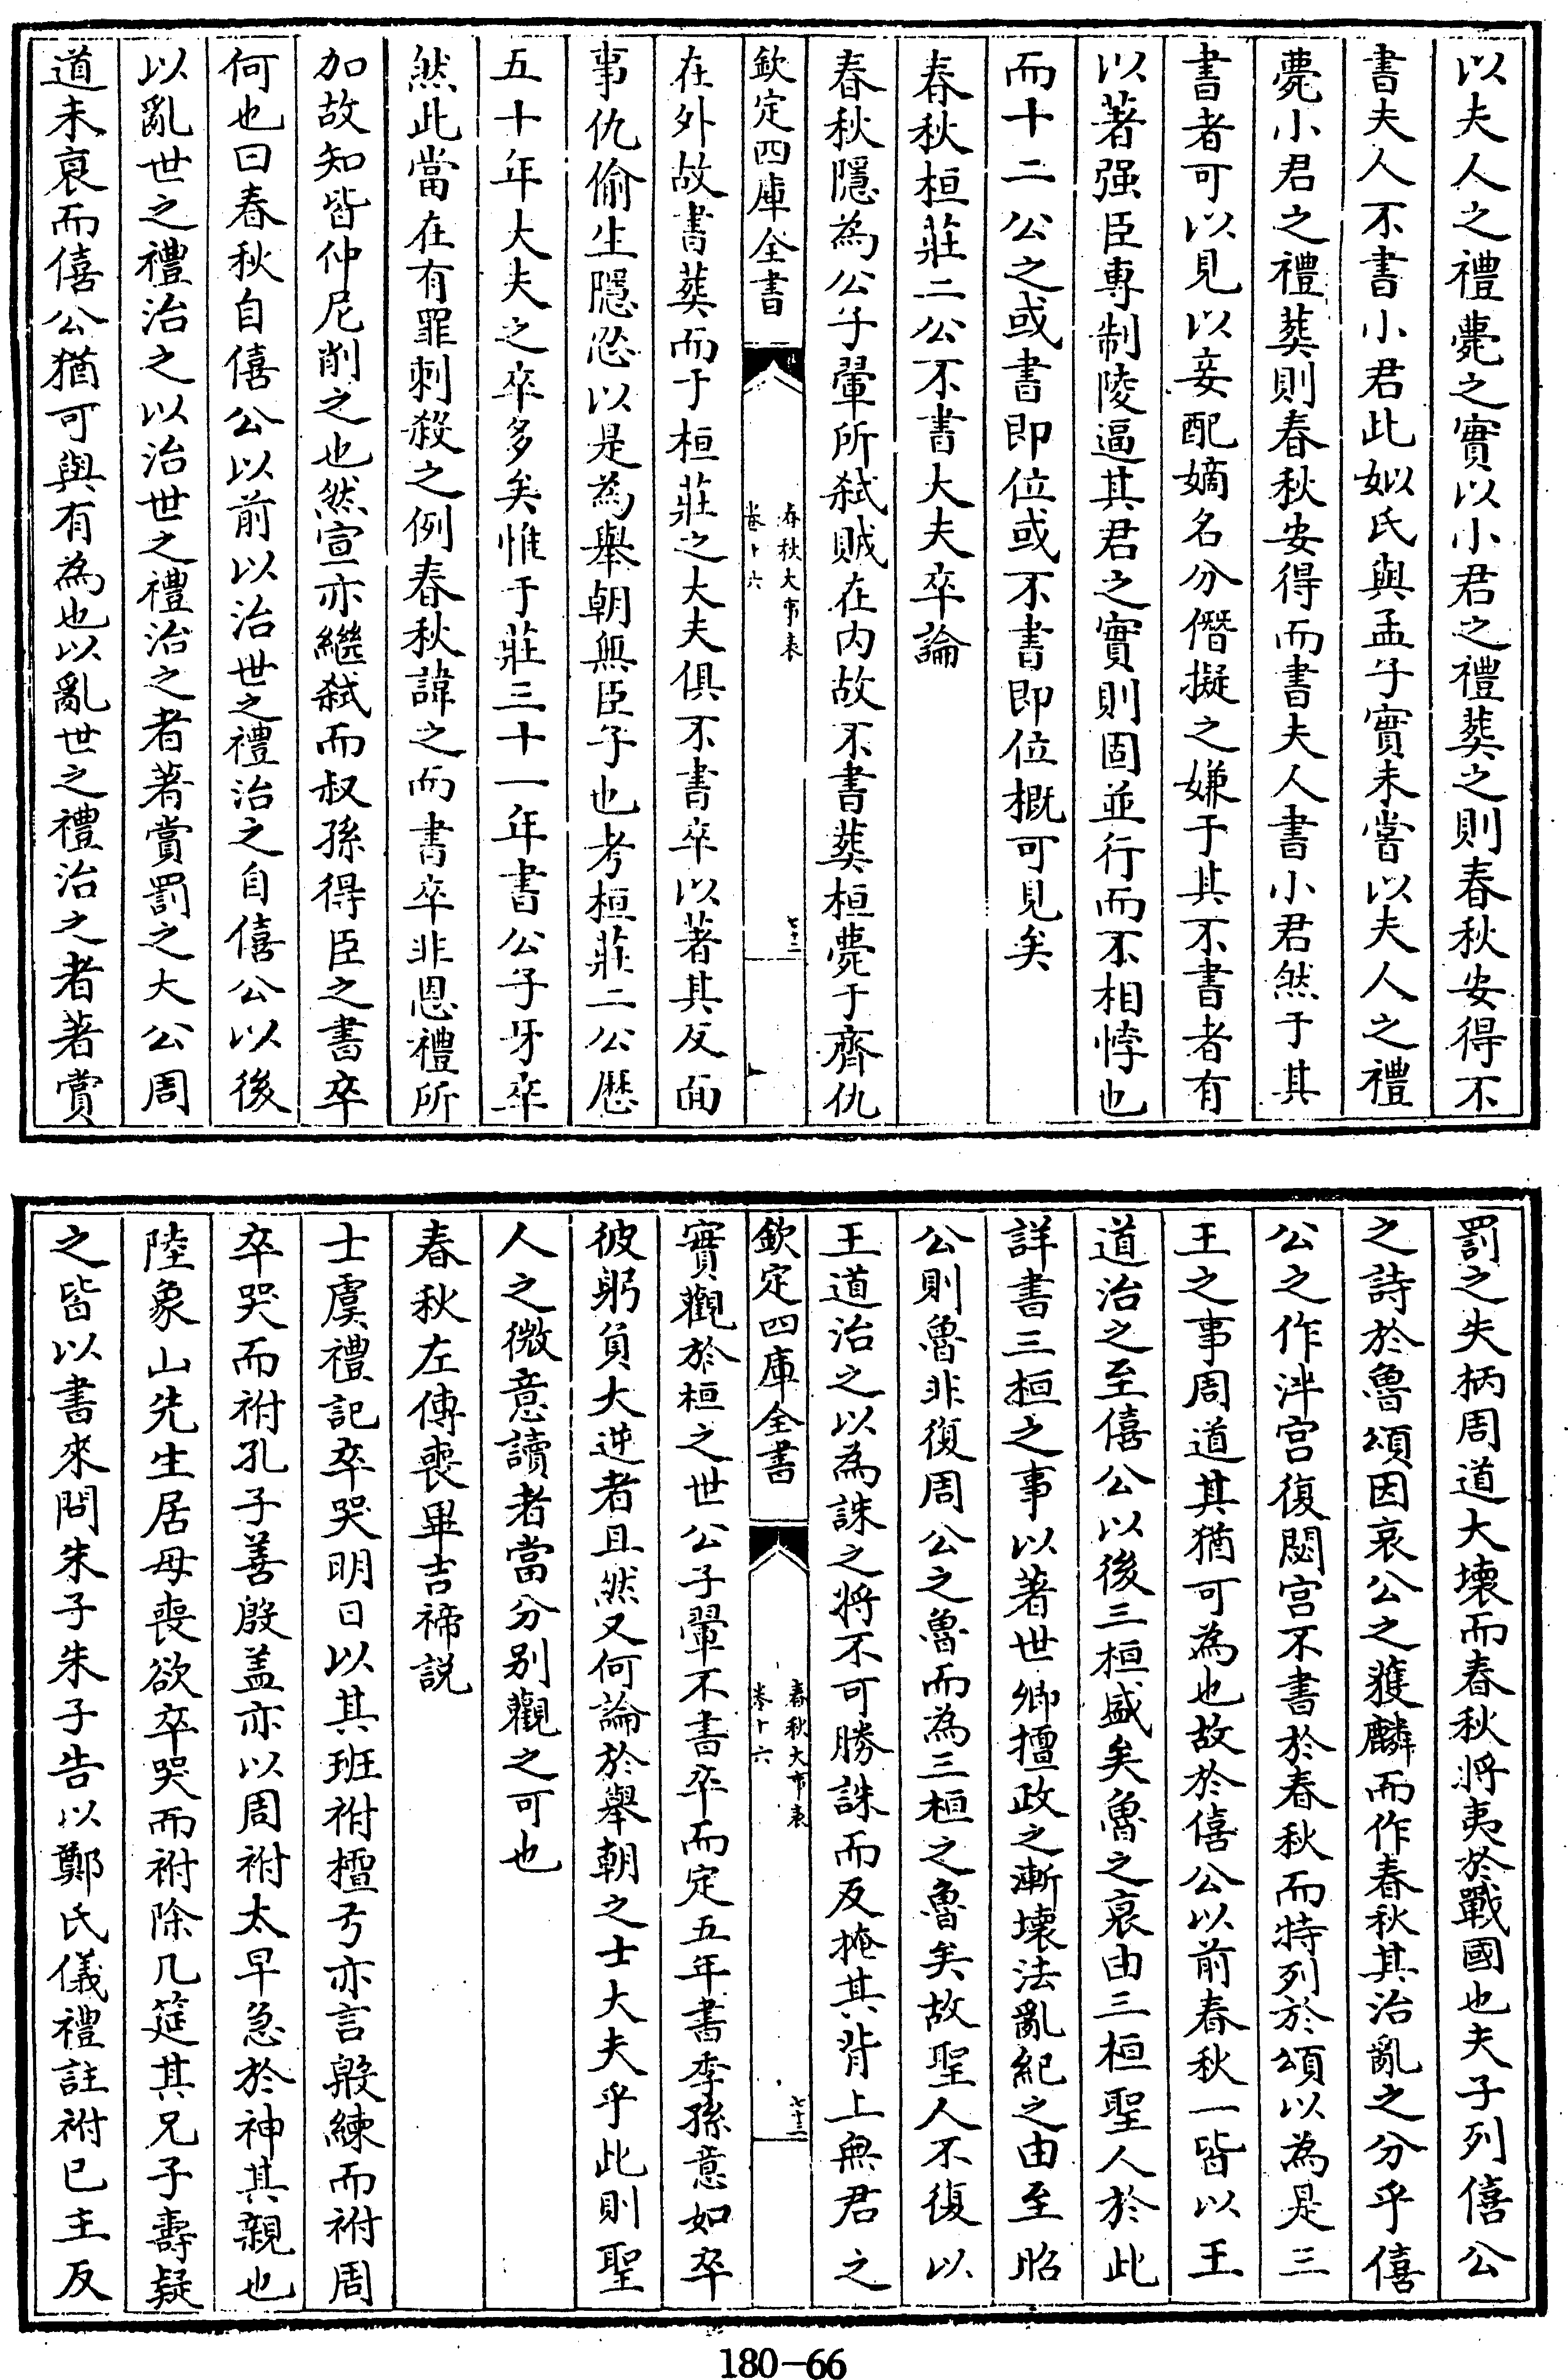 以夫人之禮薨之實以小君之禮葬之則春秋安得不
書夫人不書小君此姒氏與孟子實未嘗以夫人之禮
薨小君之禮葬則春秋安得而書夫人書小君然于其
書者可以見以妾配嫡名分僭擬之嫌于其不書者有
以著强臣專制陵逼其君之實則固並行而不相悖也
而十二公之或書即位或不書即位概可見矣
春秋桓莊二公不書大夫卒論
春秋隱為公子翬所弑賊在内故不書葬桓薨于齊仇
欽定四庫全書
春秋大事表
卷十六
七十二
在外故書葬而于桓莊之大夫俱不書卒以著其反面
事仇偷生隱忍以是為舉朝無臣子也考桓莊二公歷
五十年大夫之卒多矣惟于莊三十一年書公子牙卒
然此當在有罪刺殺之例春秋諱之而書卒非恩禮所
加故知皆仲尼削之也然宣亦繼弑而叔孫得臣之書卒
何也曰春秋自僖公以前以治世之禮治之自僖公以後
以亂世之禮治之以治世之禮治之者著賞罰之大公周
道未衰而僖公猶可與有為也以亂世之禮治之者著賞
罰之失柄周道大壞而春秋將夷於戰國也夫子列僖公
之詩於魯頌因哀公之獲麟而作春秋其治亂之分乎僖
公之作泮宫復閟宫不書於春秋而特列於頌以為是三
王之事周道其猶可為也故於僖公以前春秋一皆以王
道治之至僖公以後三桓盛矣魯之衰由三桓聖人於此
詳書三桓之事以著世卿擅政之漸壞法亂紀之由至昭
公則魯非復周公之魯而為三桓之魯矣故聖人不復以
王道治之以為誅之將不可勝誅而反掩其背上無君之
欽定四庫全書
春秋大事表
卷十六
七十三
實觀於桓之世公子翬不書卒而定五年書季孫意如卒
彼躬負大逆者且然又何論於舉朝之士大夫乎此則聖
人之微意讀者當分别觀之可也
春秋左傳喪畢吉禘説
士虞禮記卒哭明日以其班祔檀弓亦言殷練而祔周
卒哭而祔孔子善殷盖亦以周祔太早急於神其親也
陸象山先生居母喪欲卒哭而祔除几筵其兄子壽疑
之皆以書來問朱子朱子告以鄭氏儀禮註祔已主反
180-66